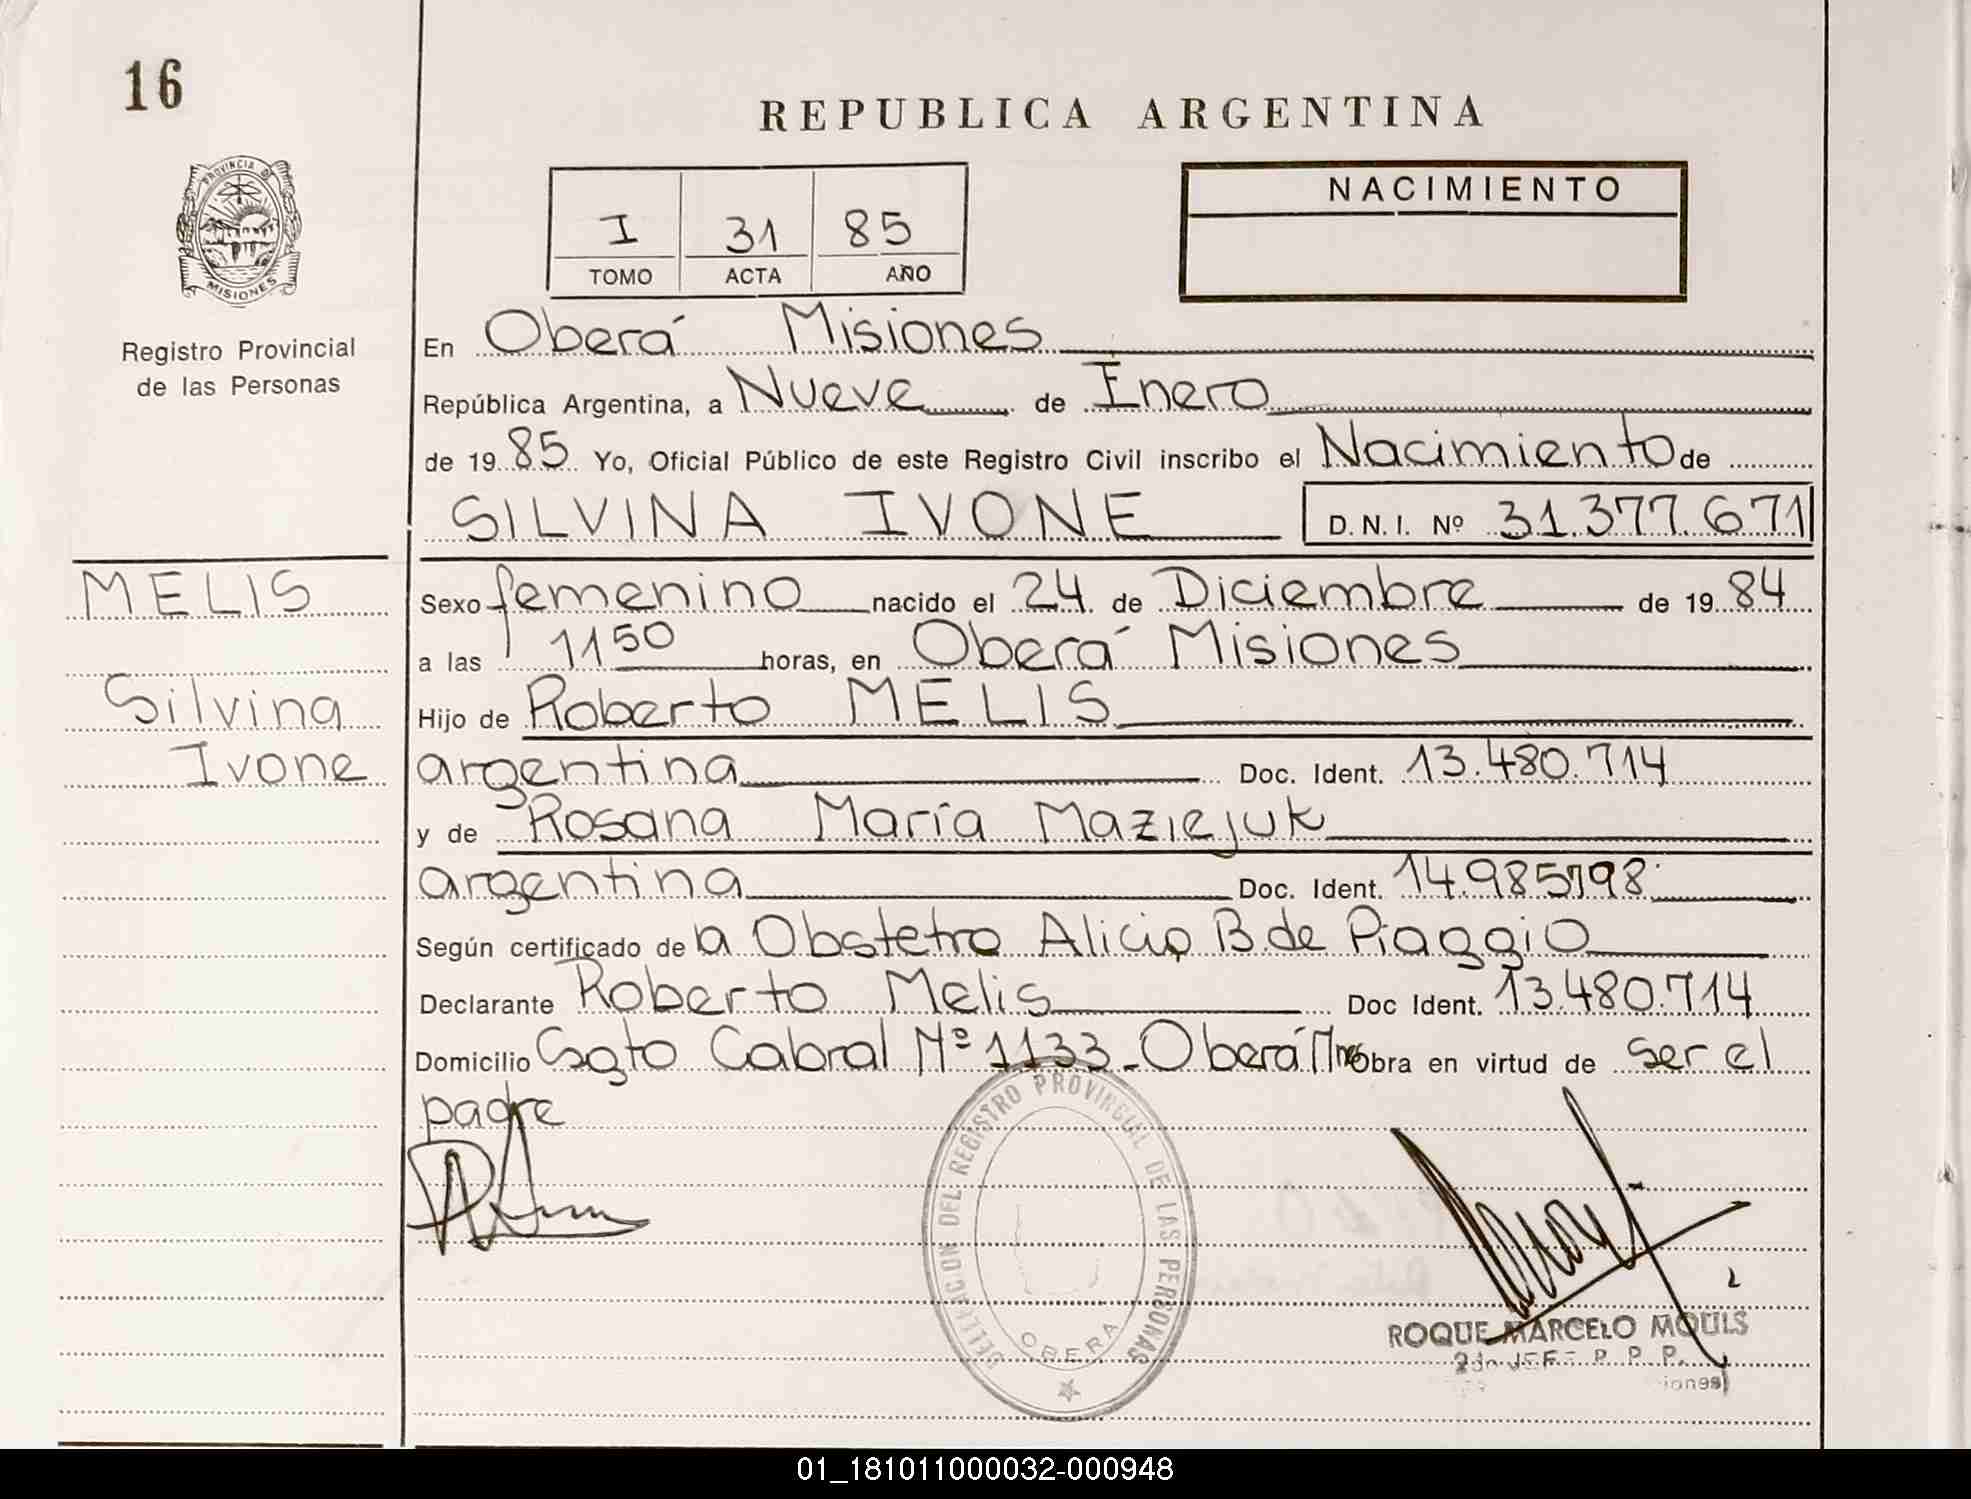 16
REPUBLICA ARGENTINA
PROVINCIA DE
MISIONES
Registro Provincial
de las Personas
I 31 85
TOMO ACTA AÑO
NACIMIENTO
En Oberá Misiones
República Argentina, a Nueve de Enero
de 1985 Yo, Oficial Público de este Registro Civil inscribo el Nacimiento de
SILVINA IVONE D.N.I. Nº 31.377.671
MELIS
Silvina
Ivone
Sexo femenino nacido el 24 de Diciembre de 1984
a las 1150 horas, en Oberá Misiones
Hijo de Roberto MELIS
argentina Doc. Ident. 13.480.714
y de Rosana María Maziejuk
argentina Doc. Ident. 14.985798
Según certificado de la Obstetra Alicia B. de Piaggio
Declarante Roberto Melis Doc Ident. 13.480.714
Domicilio Sgto Cabral Nº 1133-Oberá Mnes Obra en virtud de ser el
padre
DELEGACION DEL REGISTRO PROVINCIAL DE LAS PERSONAS
OBERA
ROQUE MARCELO MOULS
2do JEFE R. P. P.
01_181011000032-000948